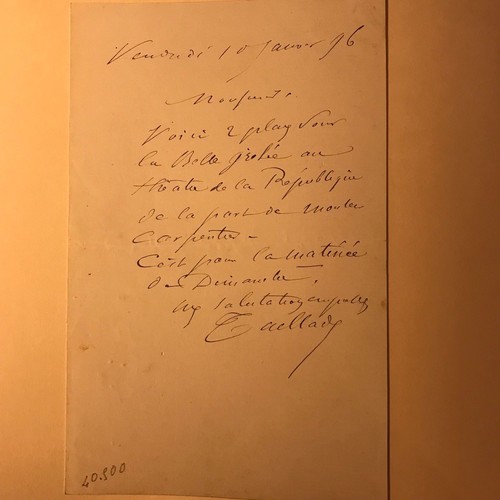 Vendredi 10 Janvier 96
Monsieur.
Voici 2 places pour
la Belle au
théatre de la République
de la part de
Carpentier –
C'est pour la matinée
de Dimanche.
Mes salutations
Taillade
40.900